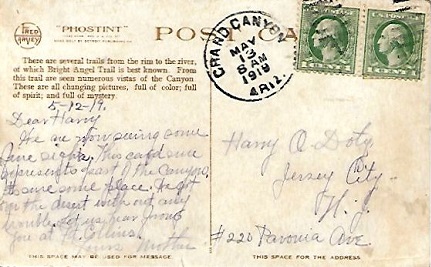 FRED HARVEY
"PHOSTINT"
POST CA
There are several trails from the rim to the river,
of which Bright Angel Trail is best known. From
this trail are seen numerous vistas of the Canyon.
These are all changing pictures, full of color; full
of spirit; and full of mystery.
GRAND CANYON
MAY
13
6 AM
1919
ARIZ.
5-12-19.
Dear Harry
We are now seeing some
fine sights. This card sure
represents part of the Canyon,
its sure some place. We got
over the desert with out any
trouble. Let us hear from
you at Ft. Collins.
Harry O Doty
Jersey City
N. J.
#220 Pavonia Ave.
THIS SPACE MAY BE USED FOR MESSAGE
THIS SPACE IS FOR ADDRESS ONLY